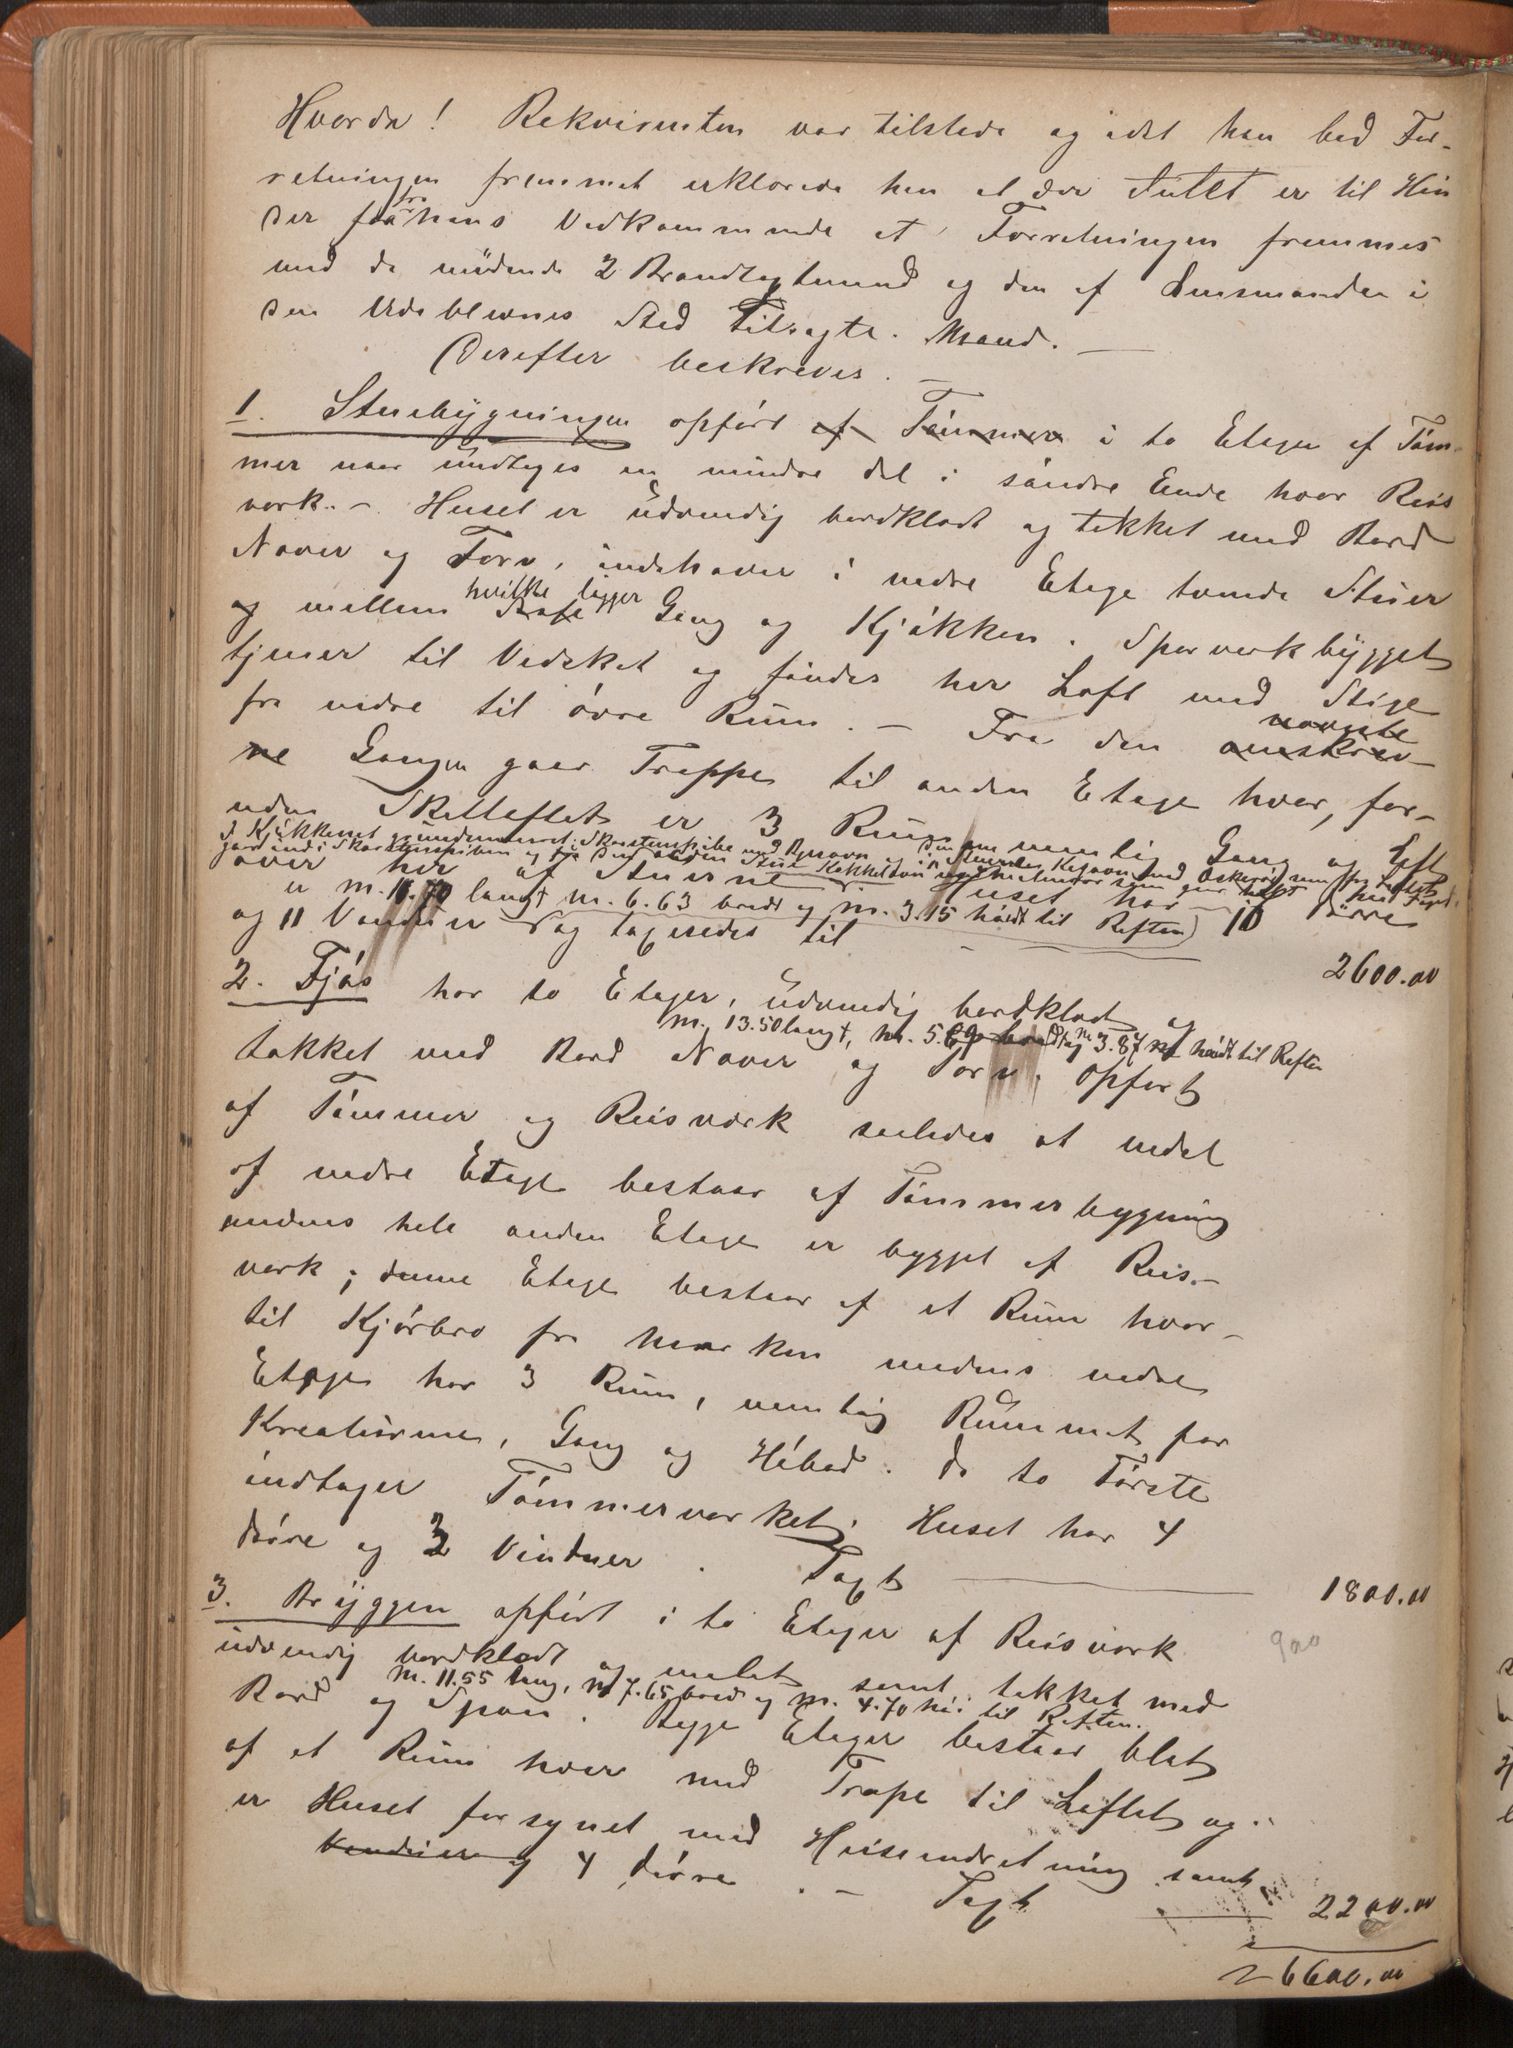 Hvorda! Rekvirenten var tilstede og idet han bad For-
retningen fremmet erklærede han at der Intet er til Hin
der for hans Vedkommende at Forretningen fremmes
med de mødende 2 Brandtagtmænd og den af Lensmanden i
den Udeblevnes Sted tilsagte Mand. —
Derefter beskreves. —
1. Stuebygningen opført af Tømmer i to Etager af Tøm-
mer naar undtages en mindre del i søndre Ende hvor Reis
værk. – Huset er udvendig bordklædt og tækket med Bord
Næver og Torv, indehaver i nedre Etage tvende Stuer
og mellem hvilke ligger Gang og Kjøkken. Sparværkbygget
tjener til Vedskot og findes her Loft med Stige
fra nedre til øvre Rum. – Fra den nævnte omskrev-
ne Gangen gaar Trappe til anden Etage hvor, for-
uden Skilleflet er 3 Rum nemlig Gang og Loft
I Kjøkkenet grundmuret Skorstenspibe med Bagerovn
over hver af Stuerne. Huset har 10 Dørre
er m. 11.70 langt m. 6.63 bredt og m. 3.15 høidt til Raften)
og 11 Vinduer og tagseredes til — 2600.00
2. Fjøs har to Etager, udvendig bordklædt og
m. 13.50 langt, m. 5.69 bredt og m 3.87 høidt til Raften
tækket med Bord Næver og Torv. opført
af Tømmer og Reisværk saaledes at nedel
af nedre Etage bestaar af Tømmerbygning
medens hele anden Etage er bygget af Reis-
værk; denne Etage bestaar af et Rum hvor-
til Kjørbro fra marken medens nedre
Etage har 3 Rum, nemlig Rummet for
Kreaturene, Gang og Høbod. De to Første
indtager Tømmerværket. Huset har 4
døre og 3 Vinduer. Taxt — 1800.00
3. Bryggen opført i to Etager af Reisværk
900
udvendig bordklædt og malet samt tækket med
m. 11.55 lang, m 7.65 bred og m. 4.70 høi til Raften.
Bord og Spon. Begge Etager bestaar blot
af et Rum hver med Trape til Loftet og
er Huset forsynet med Heiseindretning samt
Vinduer og 4 døre. – Taxt — 2200.00
6600.00